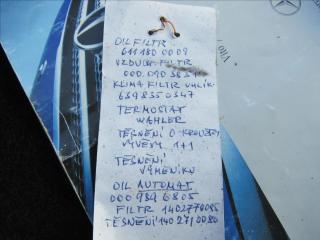 OIL FILTR
611 180 00 09
VZDUCH. FILTR
000 090 3851
KLIMA FILTR UHLÍK.
639 835 0347
TERMOSTAT
WAHLER
TĚSNĚNÍ O KROUŽKY
VÝVĚVY 1+1
TĚSNĚNÍ
VÝMĚNÍKU
OIL AUTOMAT
000 989 6805
FILTR 1402770095
TĚSNĚNÍ 140 271 0080
Vito